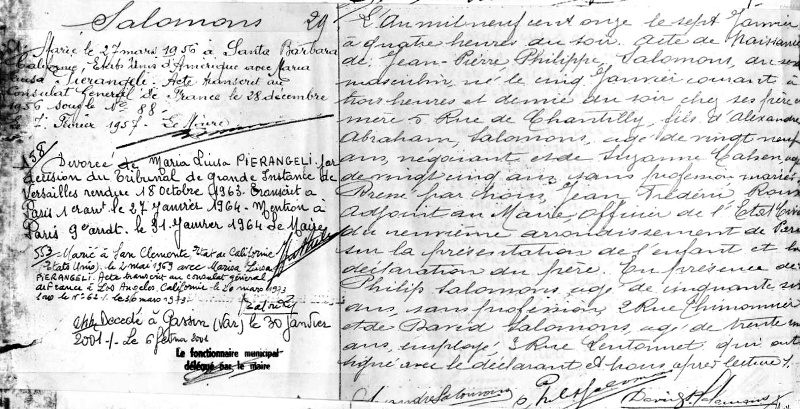 Salomons 29
Marié le 27 mars 1956 à Santa Barbara
Californie - Etats Unis d'Amérique avec Maria
Luisa Pierangeli - Acte transcrit au
Consulat Général de France le 28 décembre
1956 sous le N° 88
le 7 Février 1957 - Le Maire
138 Divorcé de Maria Luisa PIERANGELI par
décision du Tribunal de grande Instance de
Versailles rendue 18 Octobre 1963. Transcrit à
Paris 1er ardt. le 27 Janvier 1964 - Mention à
Paris 9e ardt. le 31 Janvier 1964 - le Maire
553 Marié à San Clemente, Etat de Californie
(Etats Unis), le 2 mai 1969 avec Marisa Luisa
PIERANGELI. Acte transcrit au consulat général
de France à Los Angeles, Californie le 20 mars 1973
sous le N° 62/. le 26 mars 1973
Décédé à Gassin (Var) le 30 Janvier
2001-/- le 6 février 2001
Le fonctionnaire municipal
délégué par le maire
L'An mil neuf cent onze le sept Janvier
à quatre heures du soir. Acte de Naissance
de Jean-Pierre Philippe, Salomons, du sexe
masculin, né le cinq Janvier courant à
trois heures et demie du soir chez ses père et
mère 5 Rue de Chantilly, fils d'Alexandre
Abraham, Salomons, agé de vingt neuf
ans, négociant et de Suzanne Cahen, agée
de vingt cinq ans, sans profession mariés.
Dressé par nous, Jean Frédéric Roux
Adjoint au Maire, Officier de l'Etat Civil
du neuvième arrondissement de Paris
sur la présentation de l'enfant et la
déclaration du père. En présence de
Philip Salomons, agé de cinquante six
ans, sans profession, 2 Rue Chimonnier
et de David Salomons, agé de trente
ans, employé 3 Rue Lentonnet, qui ont
signé avec le déclarant et nous après lecture /.